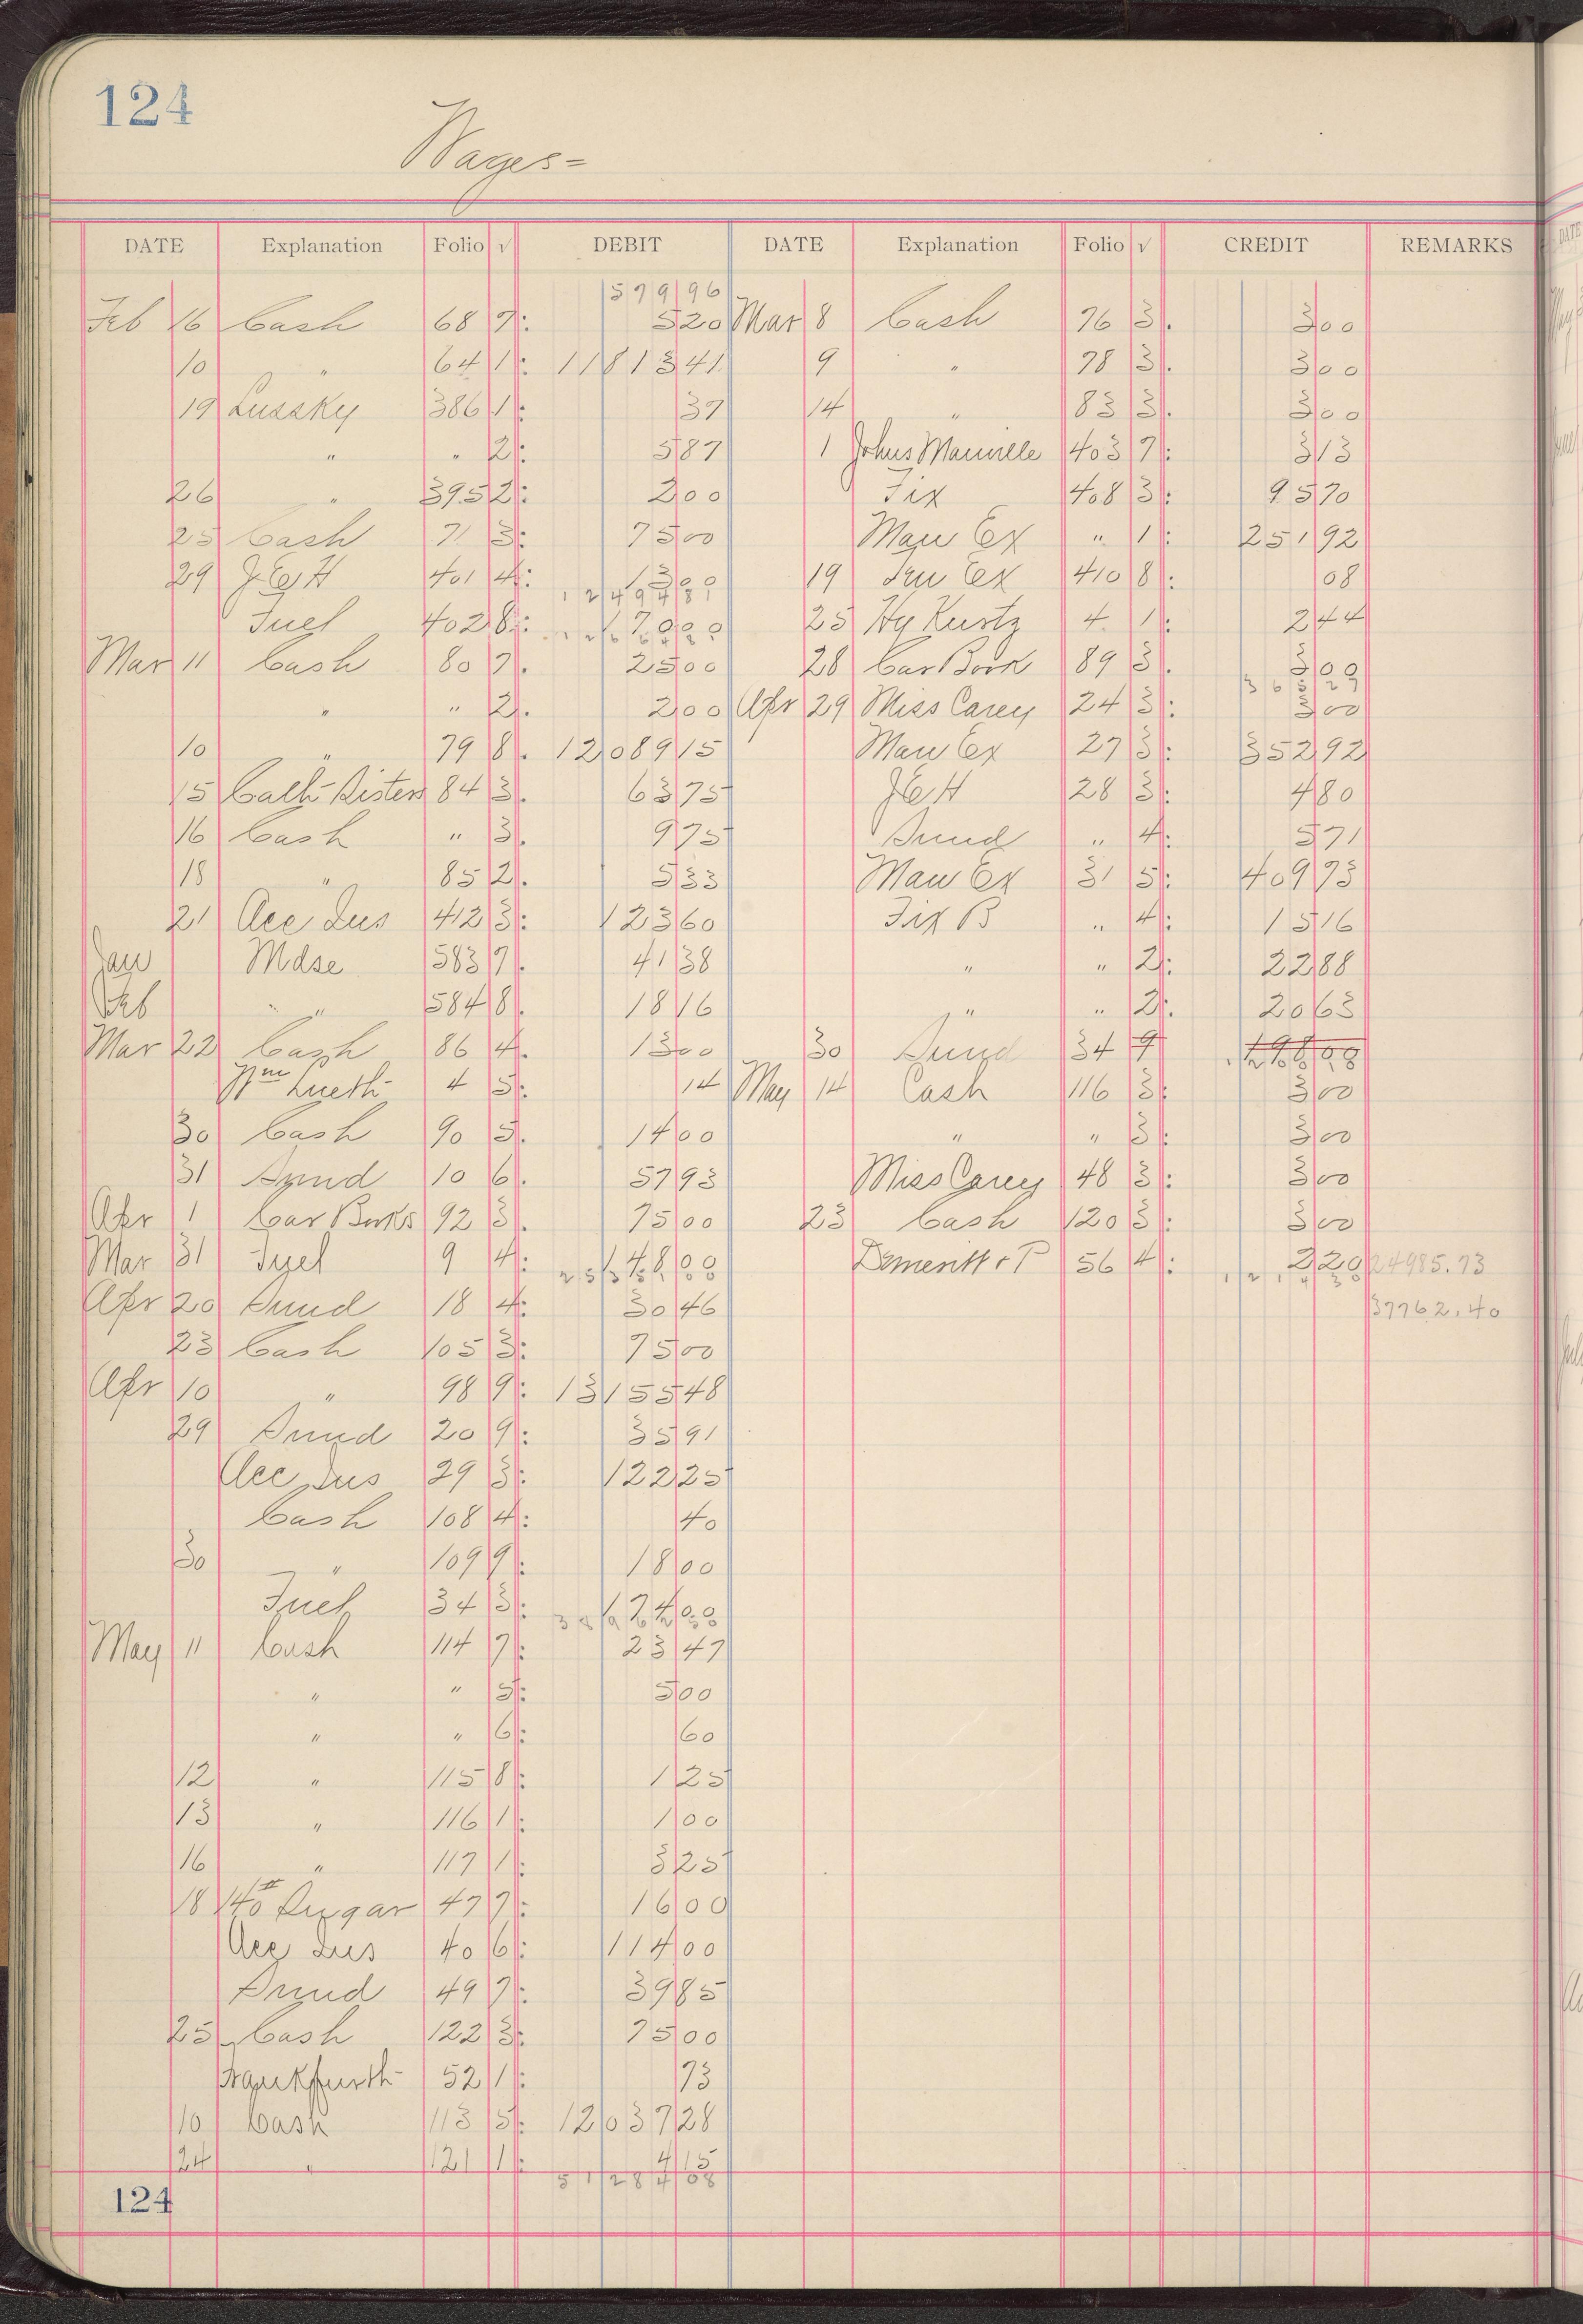 124
Wages=
DATE Explanation Folio √ DEBIT DATE Explanation Folio √ CREDIT REMARKS
579 96
Feb 16 Cash 68 7: 5 20 Mar 8 Cash 76 3. 3 00
10 " 64 1: 11813 41 9 " 78 3. 3 00
19 Lussky 386 1: 37 14 " 83 3. 3 00
" " 2: 5 87 1 Johns Manville 403 7: 3 13
26 " 395 2: 2 00 Fix 408 3: 95 70
25 Cash 71 3: 75 00 Man Ex " 1: 251 92
29 J E H 401 4: 13 00 19 Ex 410 8: 08
12494 81
Fuel 402 8: 170 00 25 Hy Kurtz 4 1: 2 44
Mar 11 Cash 80 7. 25 00 28 Car Book 89 3. 3 00
" " 2. 2 00 Apr 29 Miss Carey 24 3: 3 00
10 " 79 8. 12089 15 Man Ex 27 3: 352 92
15 Cath Sisters 84 3. 63 75 J E H 28 3: 4 80
16 Cash " 3. 9 75 Sund " 4: 5 71
18 " 85 2. 5 33 Man Ex 31 5: 409 73
21 Acc Ins 412 3: 123 60 Fix B " 4: 15 16
Jan Mdse 583 7. 41 38 " " 2: 22 88
Feb " 584 8. 18 16 " " 2: 20 63
Mar 22 Cash 86 4. 13 00 30 Sund 34 9
Wm Lueth 4 5: 14 May 14 Cash 116 3: 3 00
30 Cash 90 5. 14 00 " " 3: 3 00
31 Sund 10 6. 57 93 Miss Carey 48 3: 3 00
Apr 1 Car Books 92 3. 75 00 23 Cash 120 3: 3 00
Mar 31 Fuel 9 4: 148 00 Demeritt & P 56 4: 2 20 24985.73
Apr 20 Sund 18 4: 30 46 37762.40
23 Cash 105 3: 75 00
Apr 10 " 98 9: 13155 48
29 Sund 20 9: 35 91
Acc Ins 29 3: 122 25
Cash 108 4: 40
30 " 109 9: 18 00
Fuel 34 3: 124 00
May 11 Cash 114 7: 23 47
" " 5: 5 00
" " 6: 60
12 " 115 8: 1 25
13 " 116 1: 1 00
16 " 117 1: 3 25
18 140# Sugar 47 7: 16 00
Acc Ins 40 6: 114 00
Sund 49 7: 39 85
25 Cash 122 3: 75 00
Frankfurth 52 1: 73
10 Cash 113 5: 12037 28
24 " 121 1: 4 15
51284 08
124